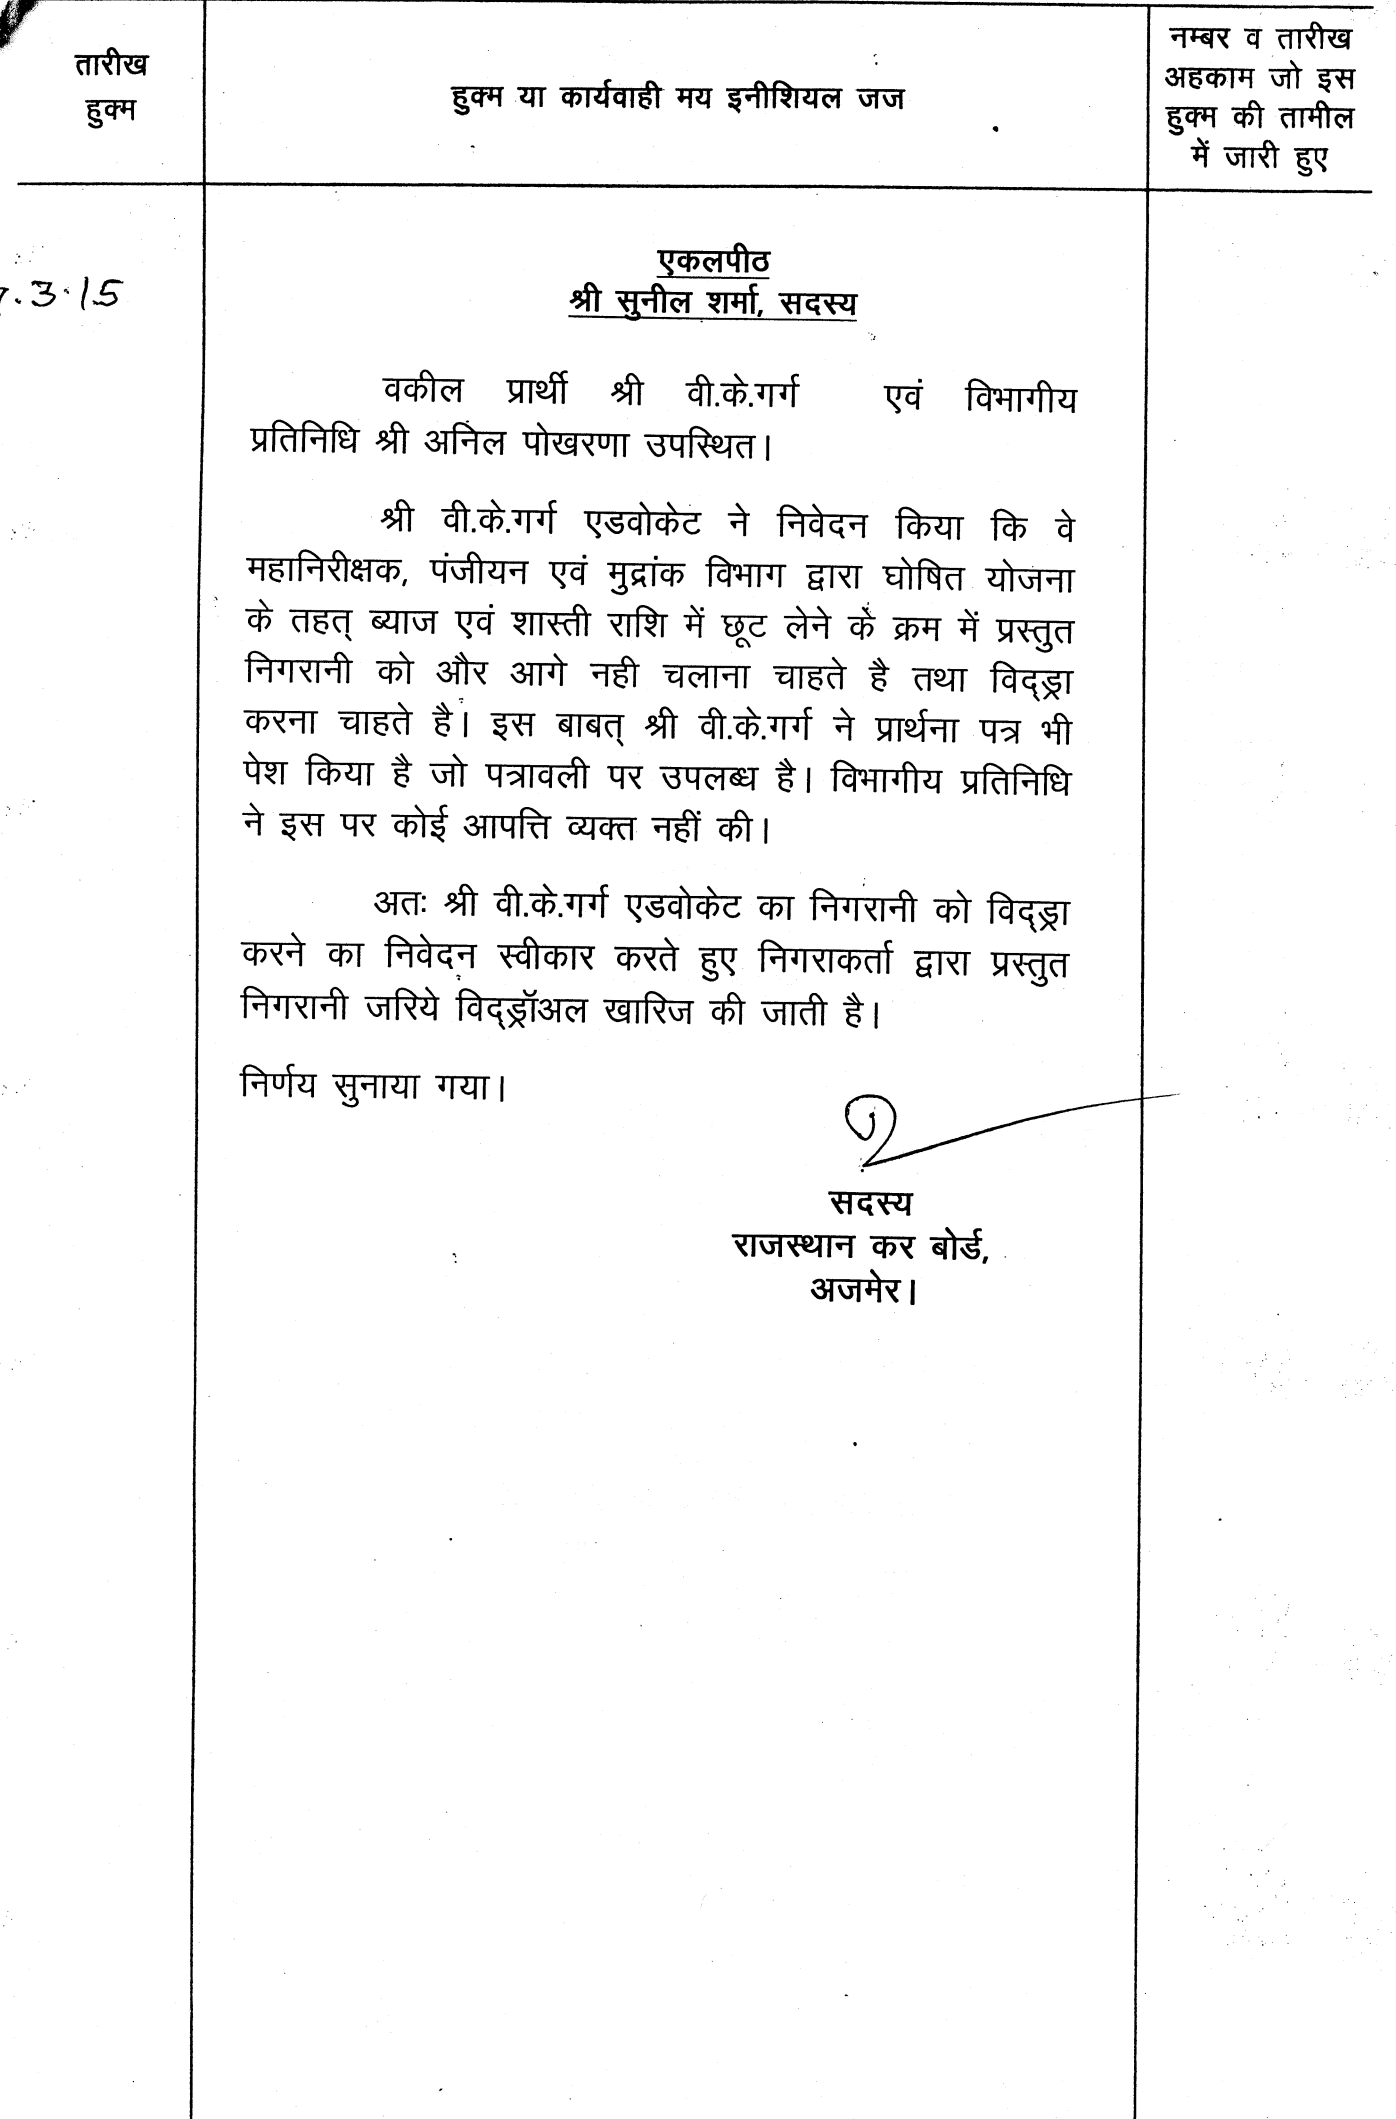 तारीख
हुक्म
हुक्म या कार्यवाही मय इनीशियल जज
नम्बर व तारीख
अहकाम जो इस
हुक्म की तामील
में जारी हुए
.3.15
एकलपीठ
श्री सुनील शर्मा, सदस्य
वकील प्रार्थी श्री वी.के.गर्ग एवं विभागीय
प्रतिनिधि श्री अनिल पोखरणा उपस्थित।
श्री वी.के.गर्ग एडवोकेट ने निवेदन किया कि वे
महानिरीक्षक, पंजीयन एवं मुद्रांक विभाग द्वारा घोषित योजना
के तहत् ब्याज एवं शास्ती राशि में छूट लेने के क्रम में प्रस्तुत
निगरानी को और आगे नही चलाना चाहते है तथा विद्ड्रा
करना चाहते है। इस बाबत् श्री वी.के.गर्ग ने प्रार्थना पत्र भी
पेश किया है जो पत्रावली पर उपलब्ध है। विभागीय प्रतिनिधि
ने इस पर कोई आपत्ति व्यक्त नहीं की।
अतः श्री वी.के.गर्ग एडवोकेट का निगरानी को विद्ड्रा
करने का निवेदन स्वीकार करते हुए निगराकर्ता द्वारा प्रस्तुत
निगरानी जरिये विद्ड्रॉअल खारिज की जाती है।
निर्णय सुनाया गया।
सदस्य
राजस्थान कर बोर्ड,
अजमेर।